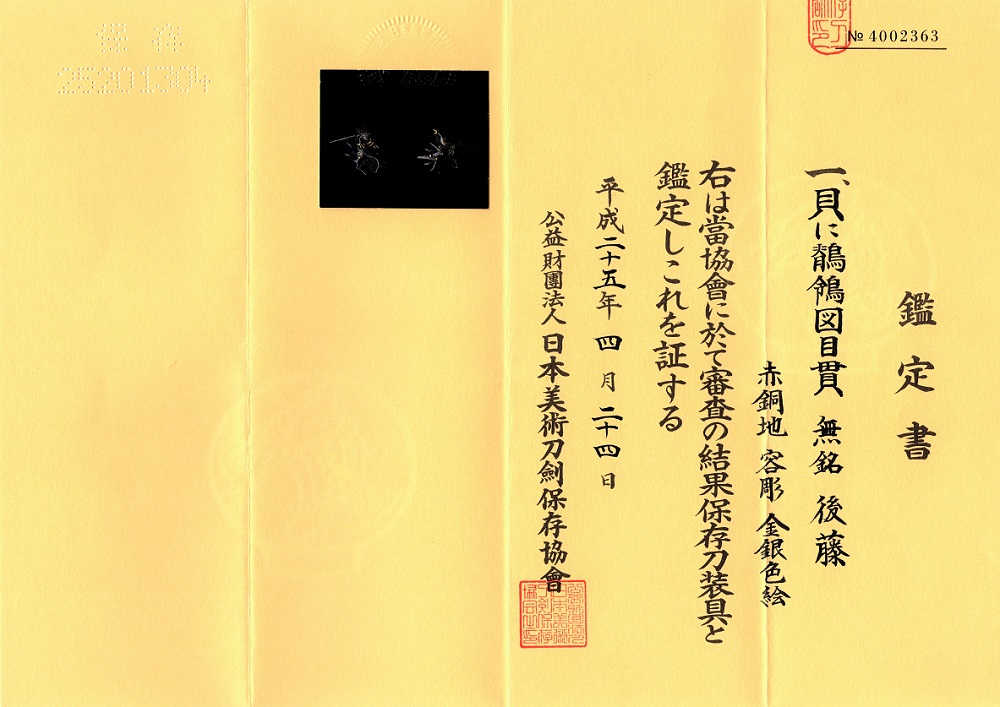 鑑定書
№ 4002363
一、貝に鶺鴒図目貫 無銘 後藤
赤銅地 容彫 金銀色絵
右は當協會に於て審査の結果保存刀装具と
鑑定しこれを証する
平成二十五年 四 月 二十四 日
公益財團法人 日本美術刀劍保存協會
保存
25201304